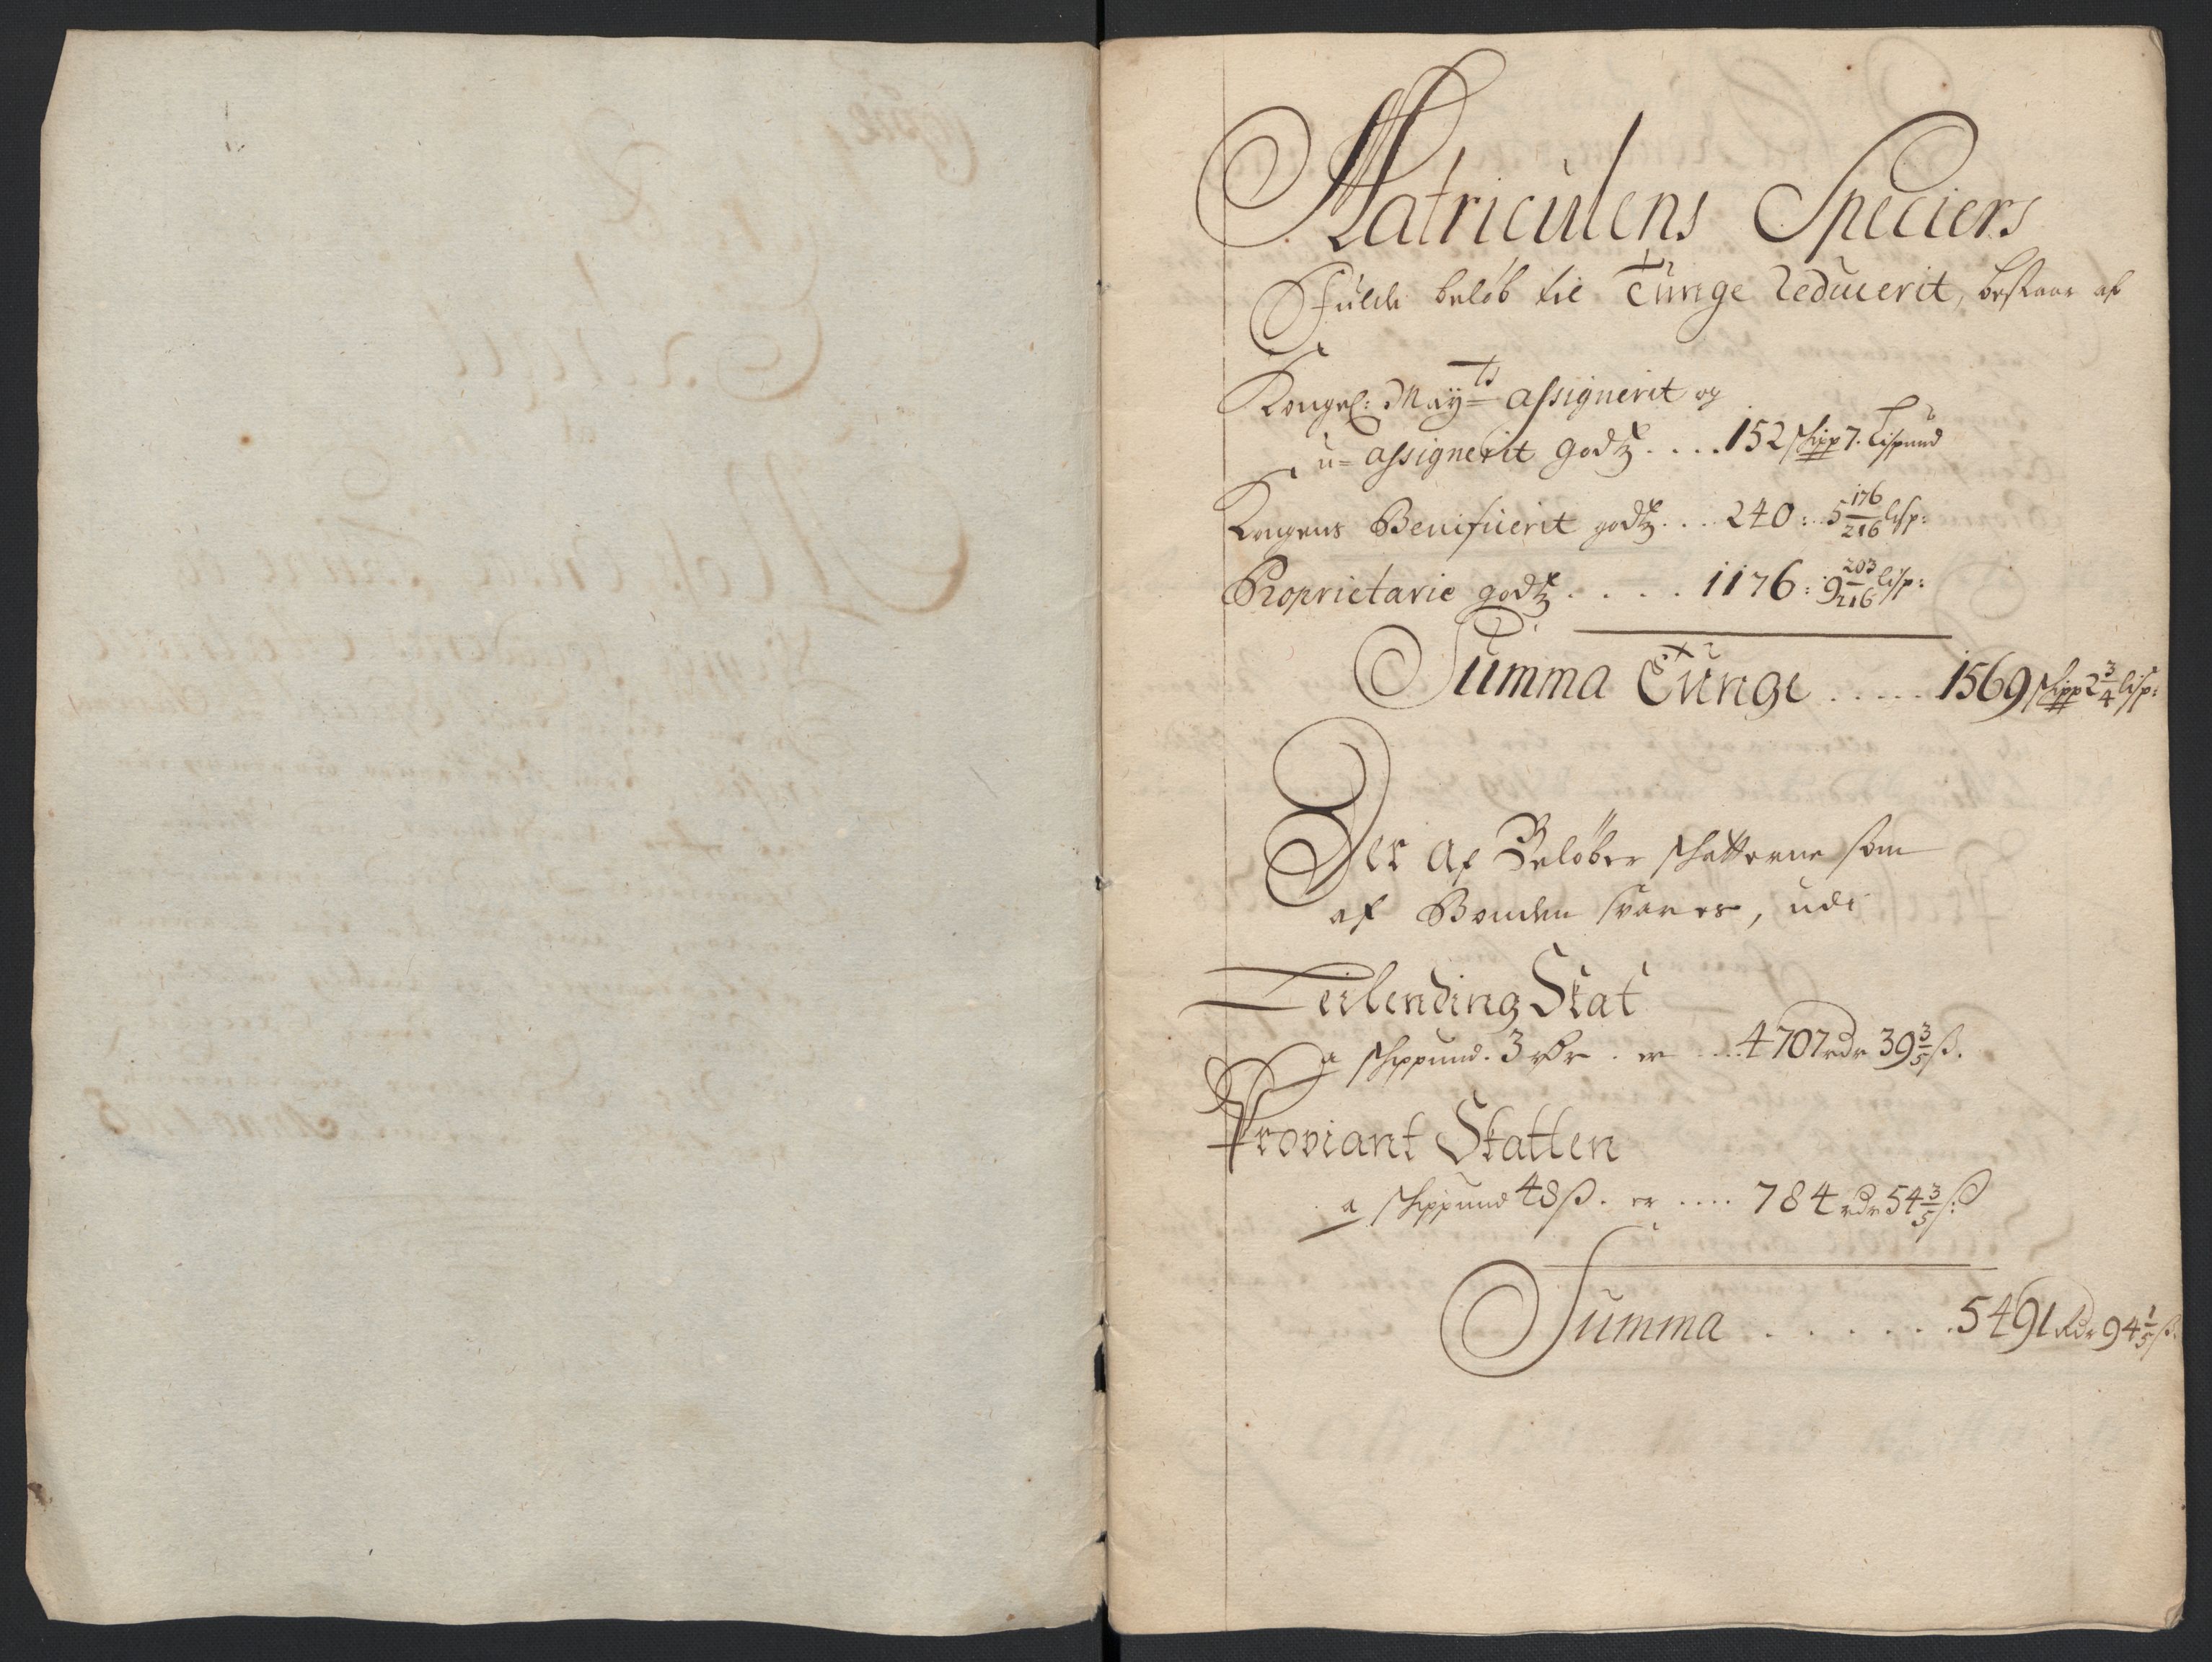 Matriculens Speciers
Fulde beløb til Tunge Reducerit, bestaar af
Kongel: Maÿts assignerit og
u- assignerit godtz .... 152 skipp 7. Lispund
Kongens Benificerit godtz ... 240: 5 176/216 lisp:
Proprietarie godtz .... 1176: 9 203/216 lisp:
Summa Tunge ..... 1569 skipp 2 3/4 lisp:
Der af Beløber skatterne som
af Bonden svares, udi
Leilending Skat
a skippund. 3 rdr. er ... 4707 rdr 39 3/5 ß.
Proviant Skatten
a skippund 48 ß. er .... 784 rdr 54 3/5 ß:
Summa ...... 5491 Rdr 94 1/5 ß.